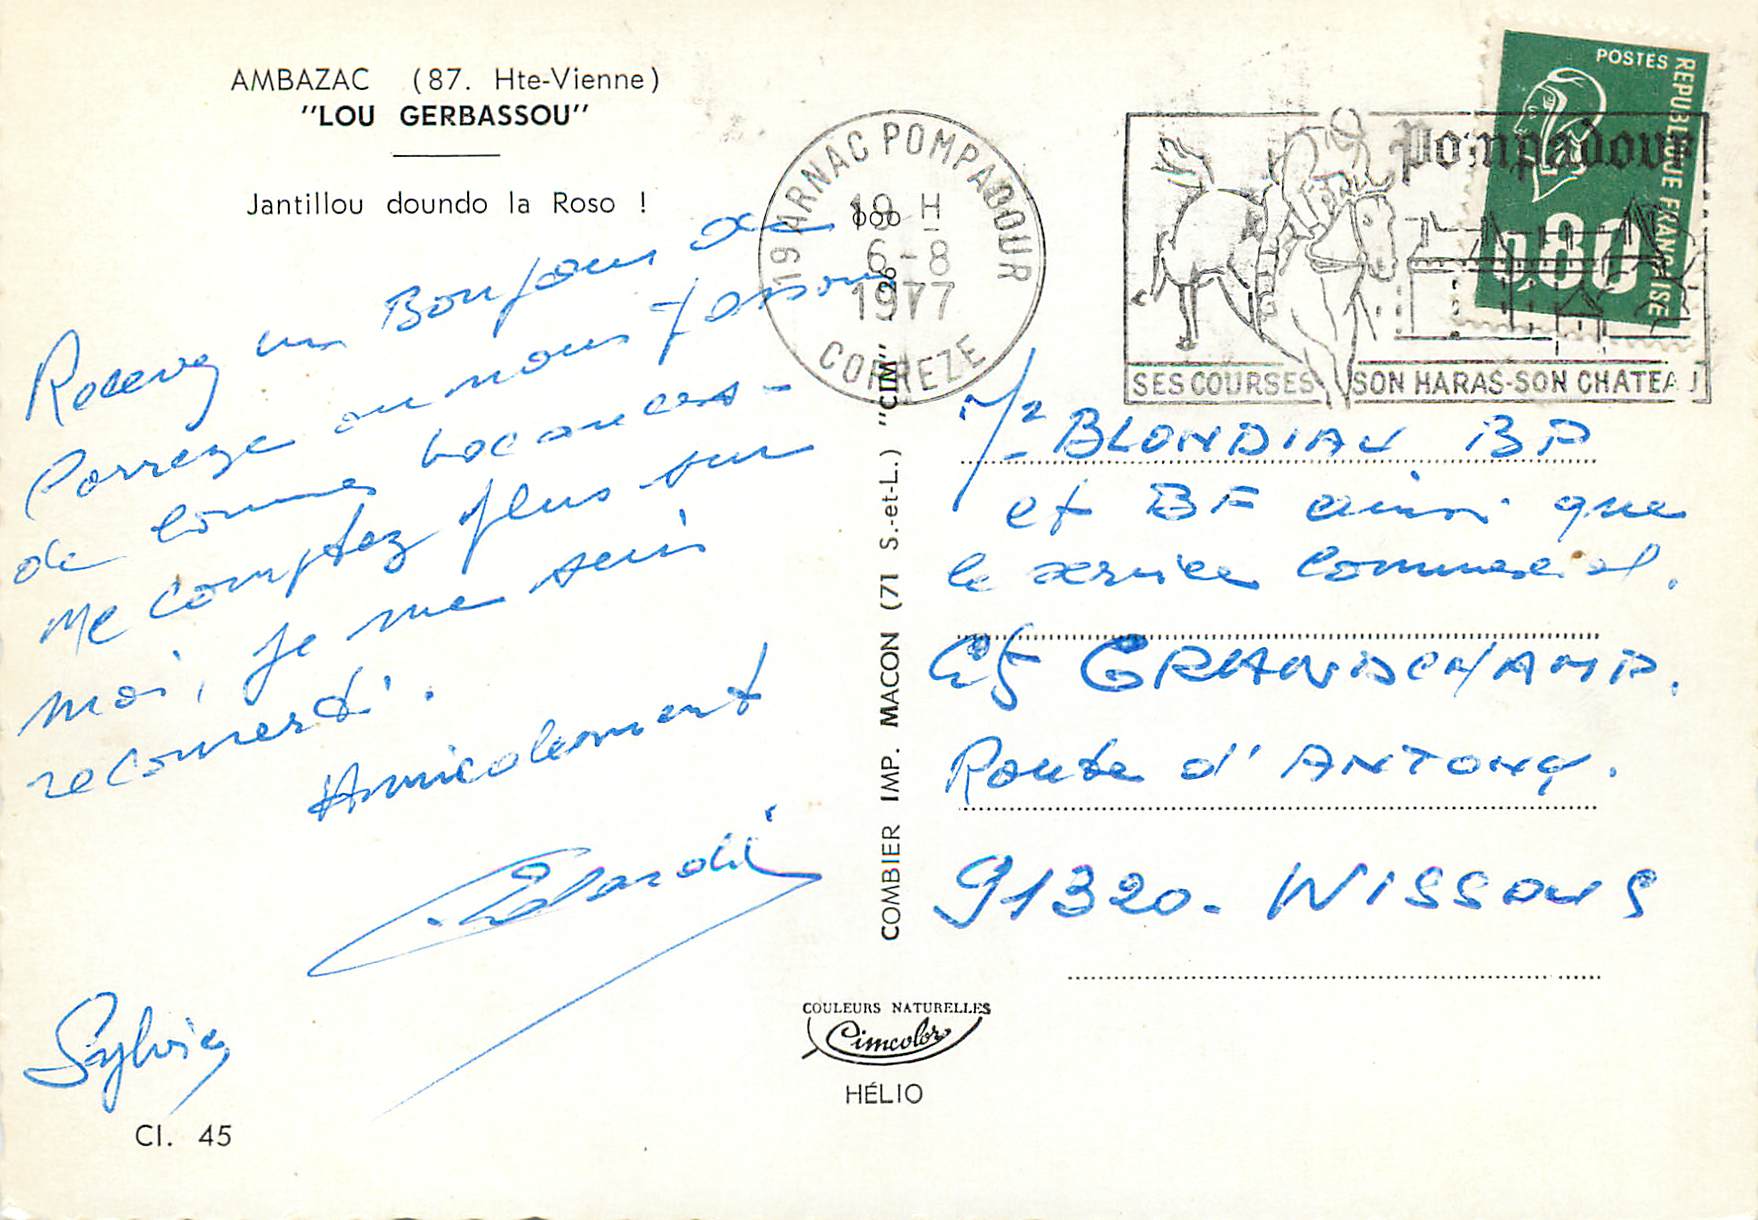 AMBAZAC (87. Hte-Vienne)
"LOU GERBASSOU"
Jantillou doundo la Roso !
Recevez un Bonjour de
Correze ou nous passons
de bonnes vacances -
Ne comptez plus sur
moi, je me suis
reconverti.
Amicalement
Sylvie
Cl. 45
19 ARNAC POMPADOUR
19 H
6-8
1977
CORREZE
COMBIER IMP. MACON (71 S.-et-L.) "CIM"
COULEURS NATURELLES
Cimcolor
HÉLIO
Pompadour
SES COURSES SON HARAS-SON CHATEAU
POSTES
REPUBLIQUE FRANÇAISE
0,80
BLONDIAU BP
et BF ainsi que
le service commercial.
Ets GRANDCHAMP.
Route d'ANTONY.
91320. WISSOUS